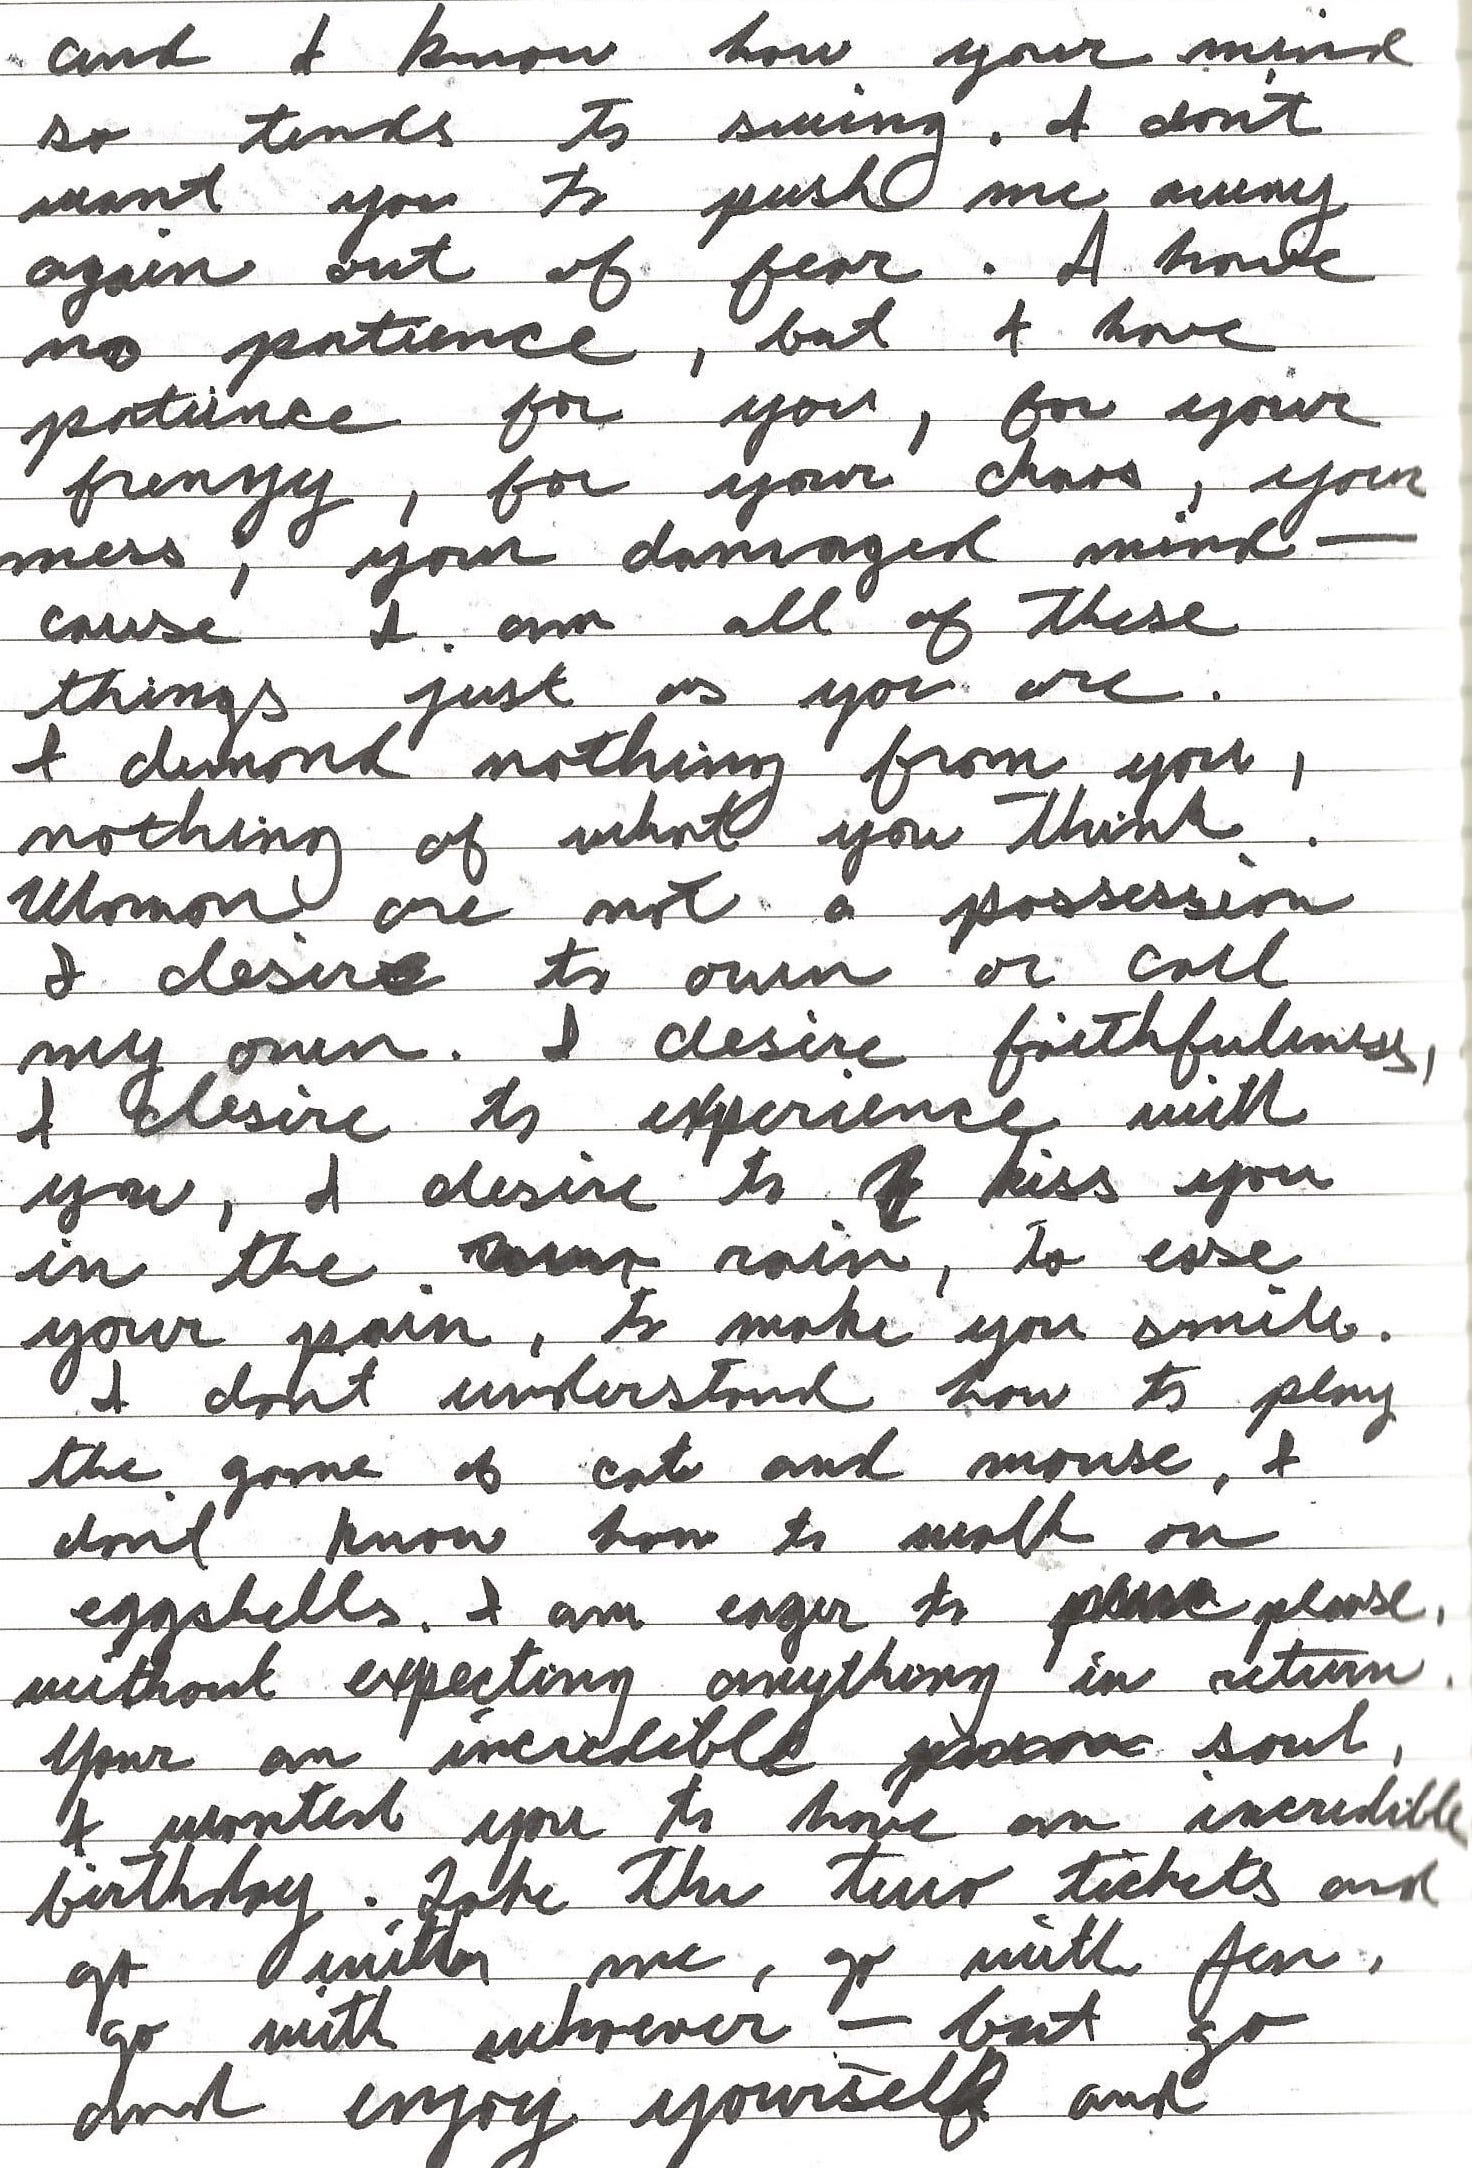 and I know how your mind
so tends to swing. I don't
want you to push me away
again out of fear. I have
no patience, but I have
patience for you, for your
frenzy, for your chaos, your
mess, your damaged mind —
cause I am all of these
things just as you are.
I demand nothing from you,
nothing of what you think.
Woman are not a possession
I desire to own or call
my own. I desire faithfulness,
I desire to experience with
you, I desire to kiss you
in the rain, to ease
your pain, to make you smile.
I don't understand how to play
the game of cat and mouse, I
don't know how to walk on
eggshells. I am eager to please,
without expecting anything in return.
Your an incredible soul,
I wanted you to have an incredible
birthday. Take the two tickets and
go with me, go with Jen,
go with whoever — but go
and enjoy yourself and